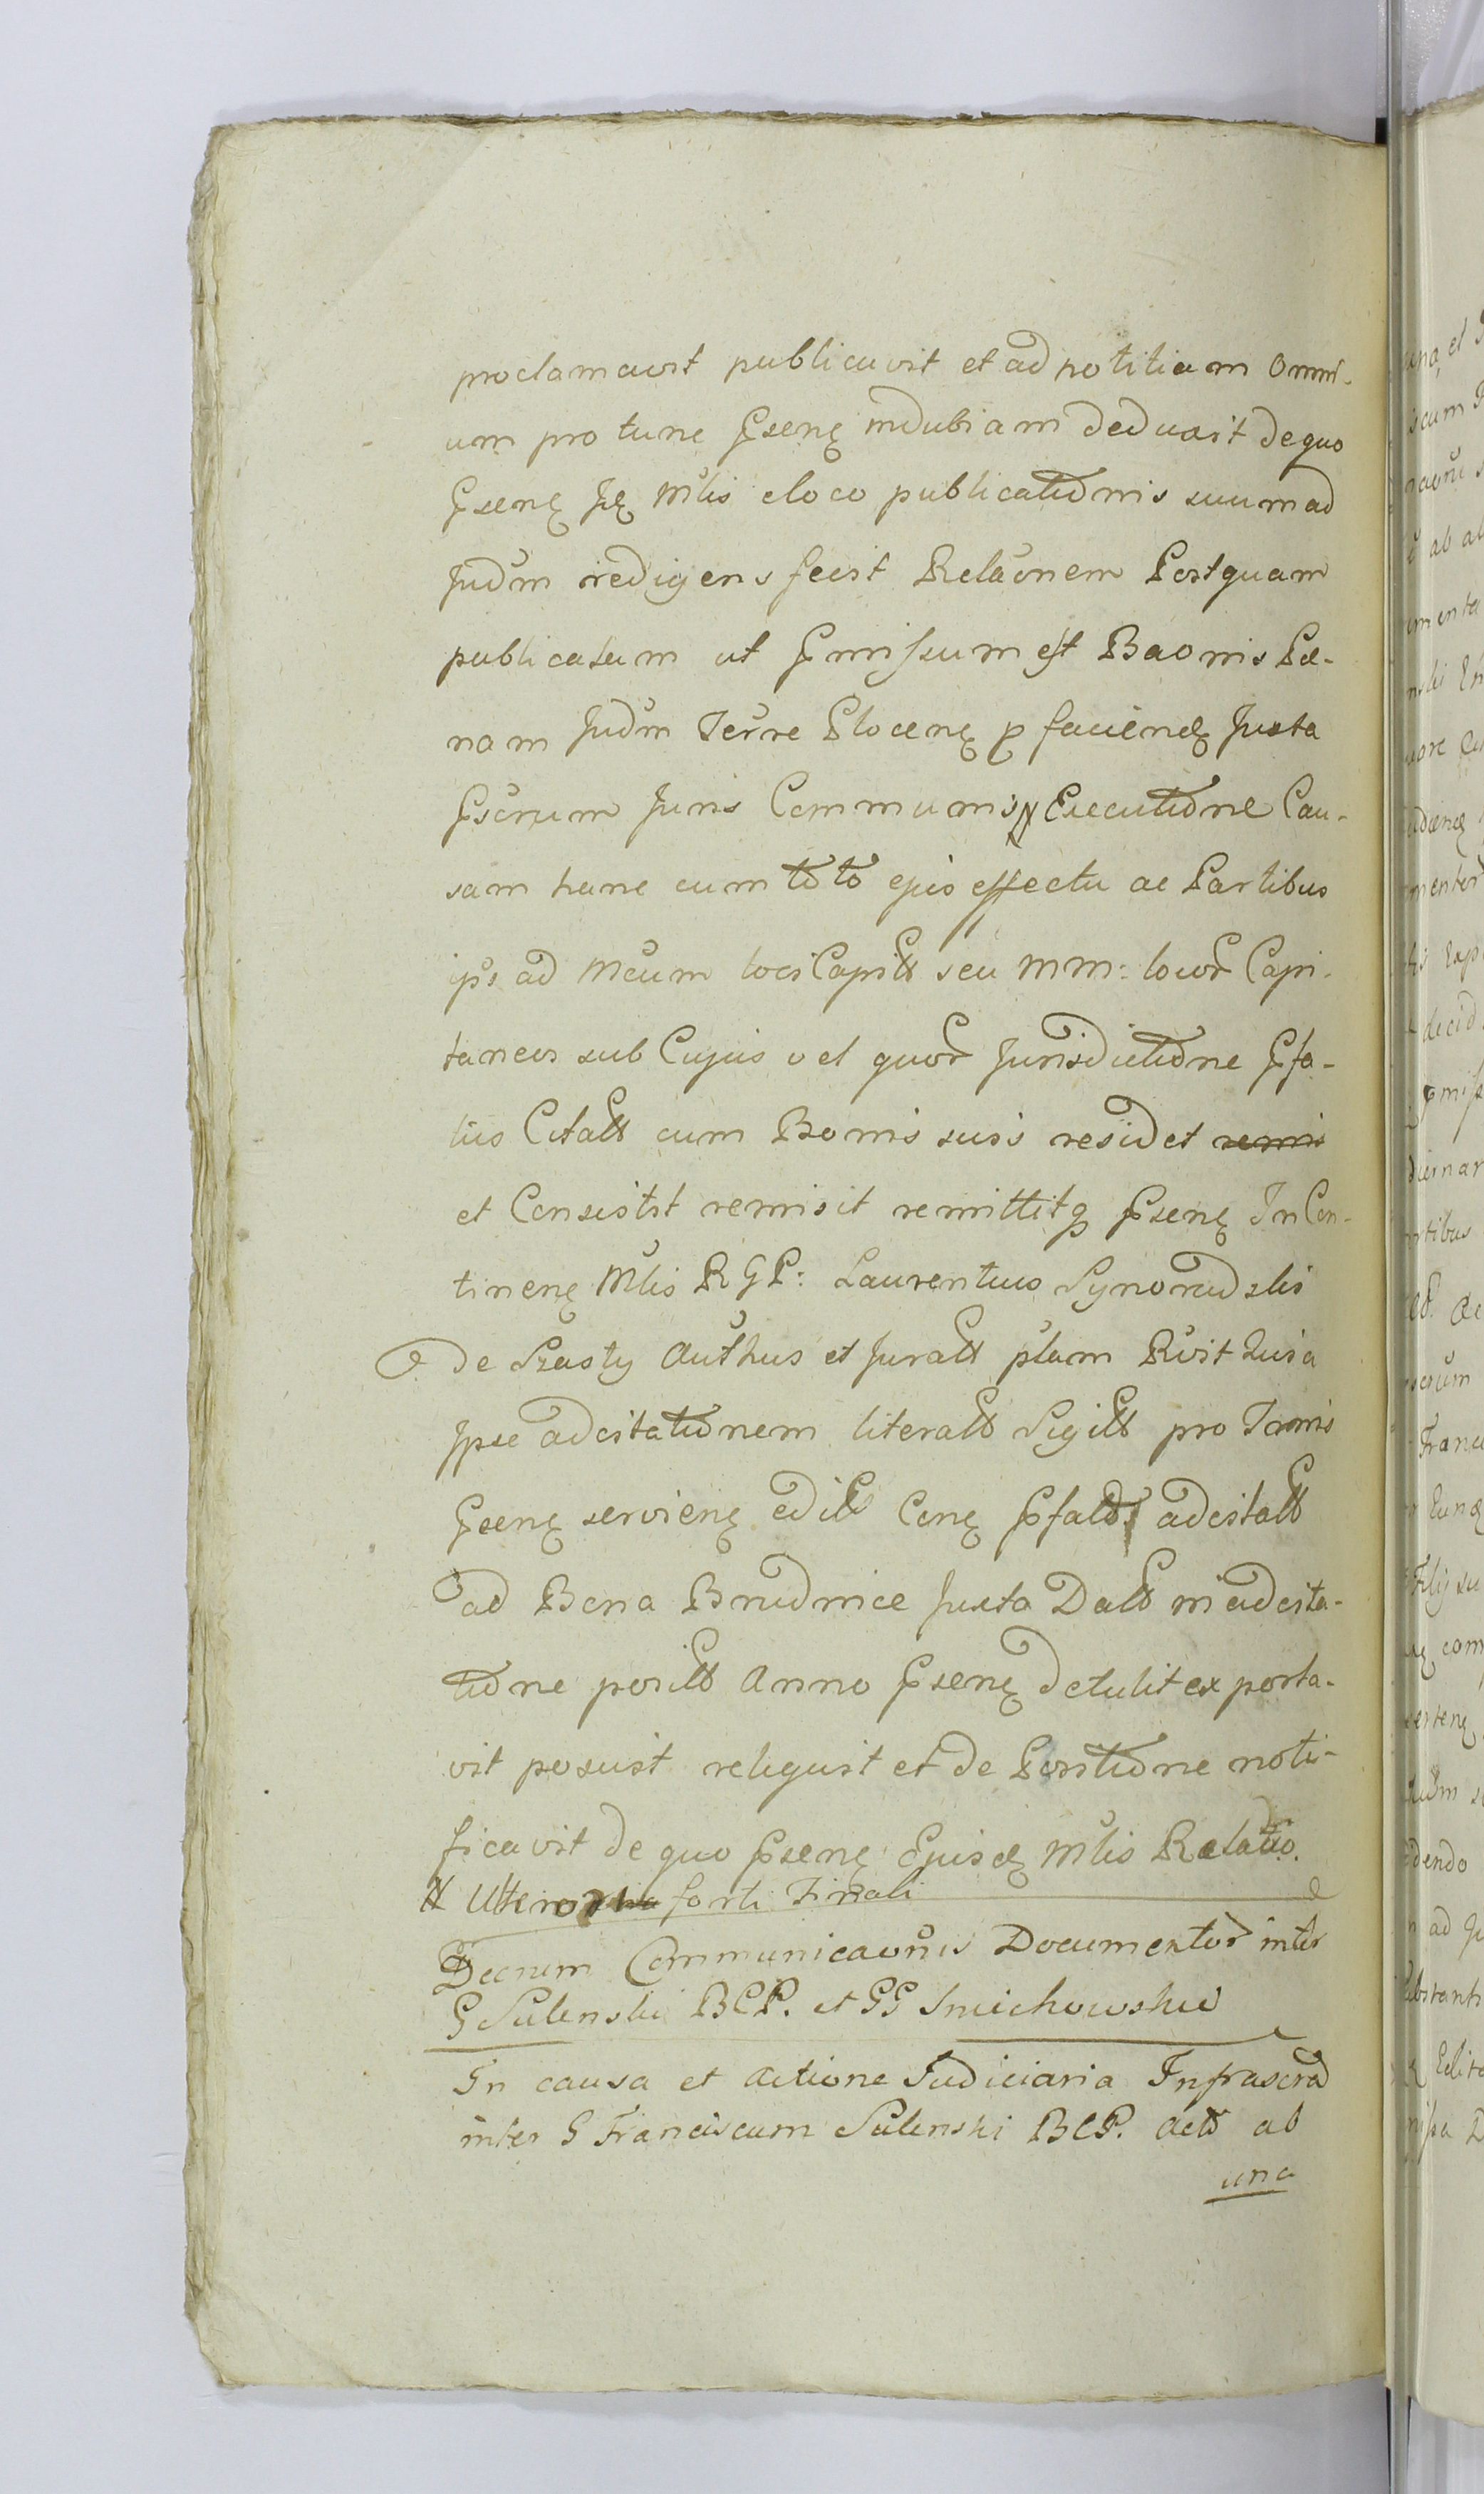 proclamavit publicavit et ad notitiam omni-
um pro tunc Psenę indubiam deduxit de quo
Psenę Ję Mlis e loco publicationis suum ad
Judm redigens fecit Relaonem Postquam
publicatam ut Pmissum est Baonis Pæ-
nam Judm Terre Plocenę p facienđ Juxta
Pscrum Juris Communis # Executione Cau-
sam hanc cum toto ejus effectu ac Partibus
ips ad Mcum loci Capitt seu MM: locor Capi-
taneos sub Cujus vel quor Jurisdictione Pfa-
tus Citatt cum Bonis suis residet remis
et Consistit remisit remittitq Psenę In Con-
tinenę Mlis RGP: Laurentius Synoradzki
de Szasty Authus et Juratt plam Rvit Quia
Ipse adcitationem literatt Sigitt pro Tamis
Psenę servienę editt Cenę Pfatos adcitatt
ad Bona Brudnice Juxta Datt in adcita-
tione positt Anno Psenę detulit exporta-
vit posuit reliquit et de Positione noti-
ficavit de quo Psenę Ejusđ Mlis Relatio.
# Ulteriori forti Finali
Decrum Communicaonis Documentor inter
G Sulenski BCP. et GG Smichowskie
In causa et Actione Judiciaria Infrascra
inter G Franciscum Sulenski BCP. Act ab
una